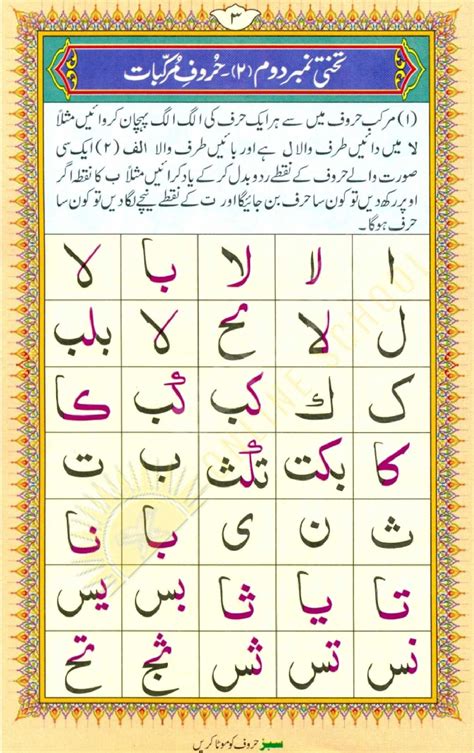 ۳
تختی نمبر دوم (۲)۔ حُروفِ مُرکّبات
(۱) مرکب حروف میں سے ہر ایک حرف کی الگ الگ پہچان کروائیں مثلاً
لا میں دائیں طرف والا ل ہے اور بائیں طرف والا الف (۲) ایک سی
صورت والے حروف کے نقطے ردو بدل کر کے یاد کرائیں مثلاً ب کا نقطہ اگر
اوپر رکھ دیں تو کون سا حرف بن جائیگا اور ت کے نقطے نیچے لگا دیں تو کون سا
حرف ہوگا۔
ا لا لا با لا
ل لا لا بلب
ک ك كب كب كا
كا بكت تكث ب ت
ث ن ى با نا
تا يا ثا بس يس
نس تس ثس
سبز حروف کو موٹا کریں
ONLINE SCHOOL